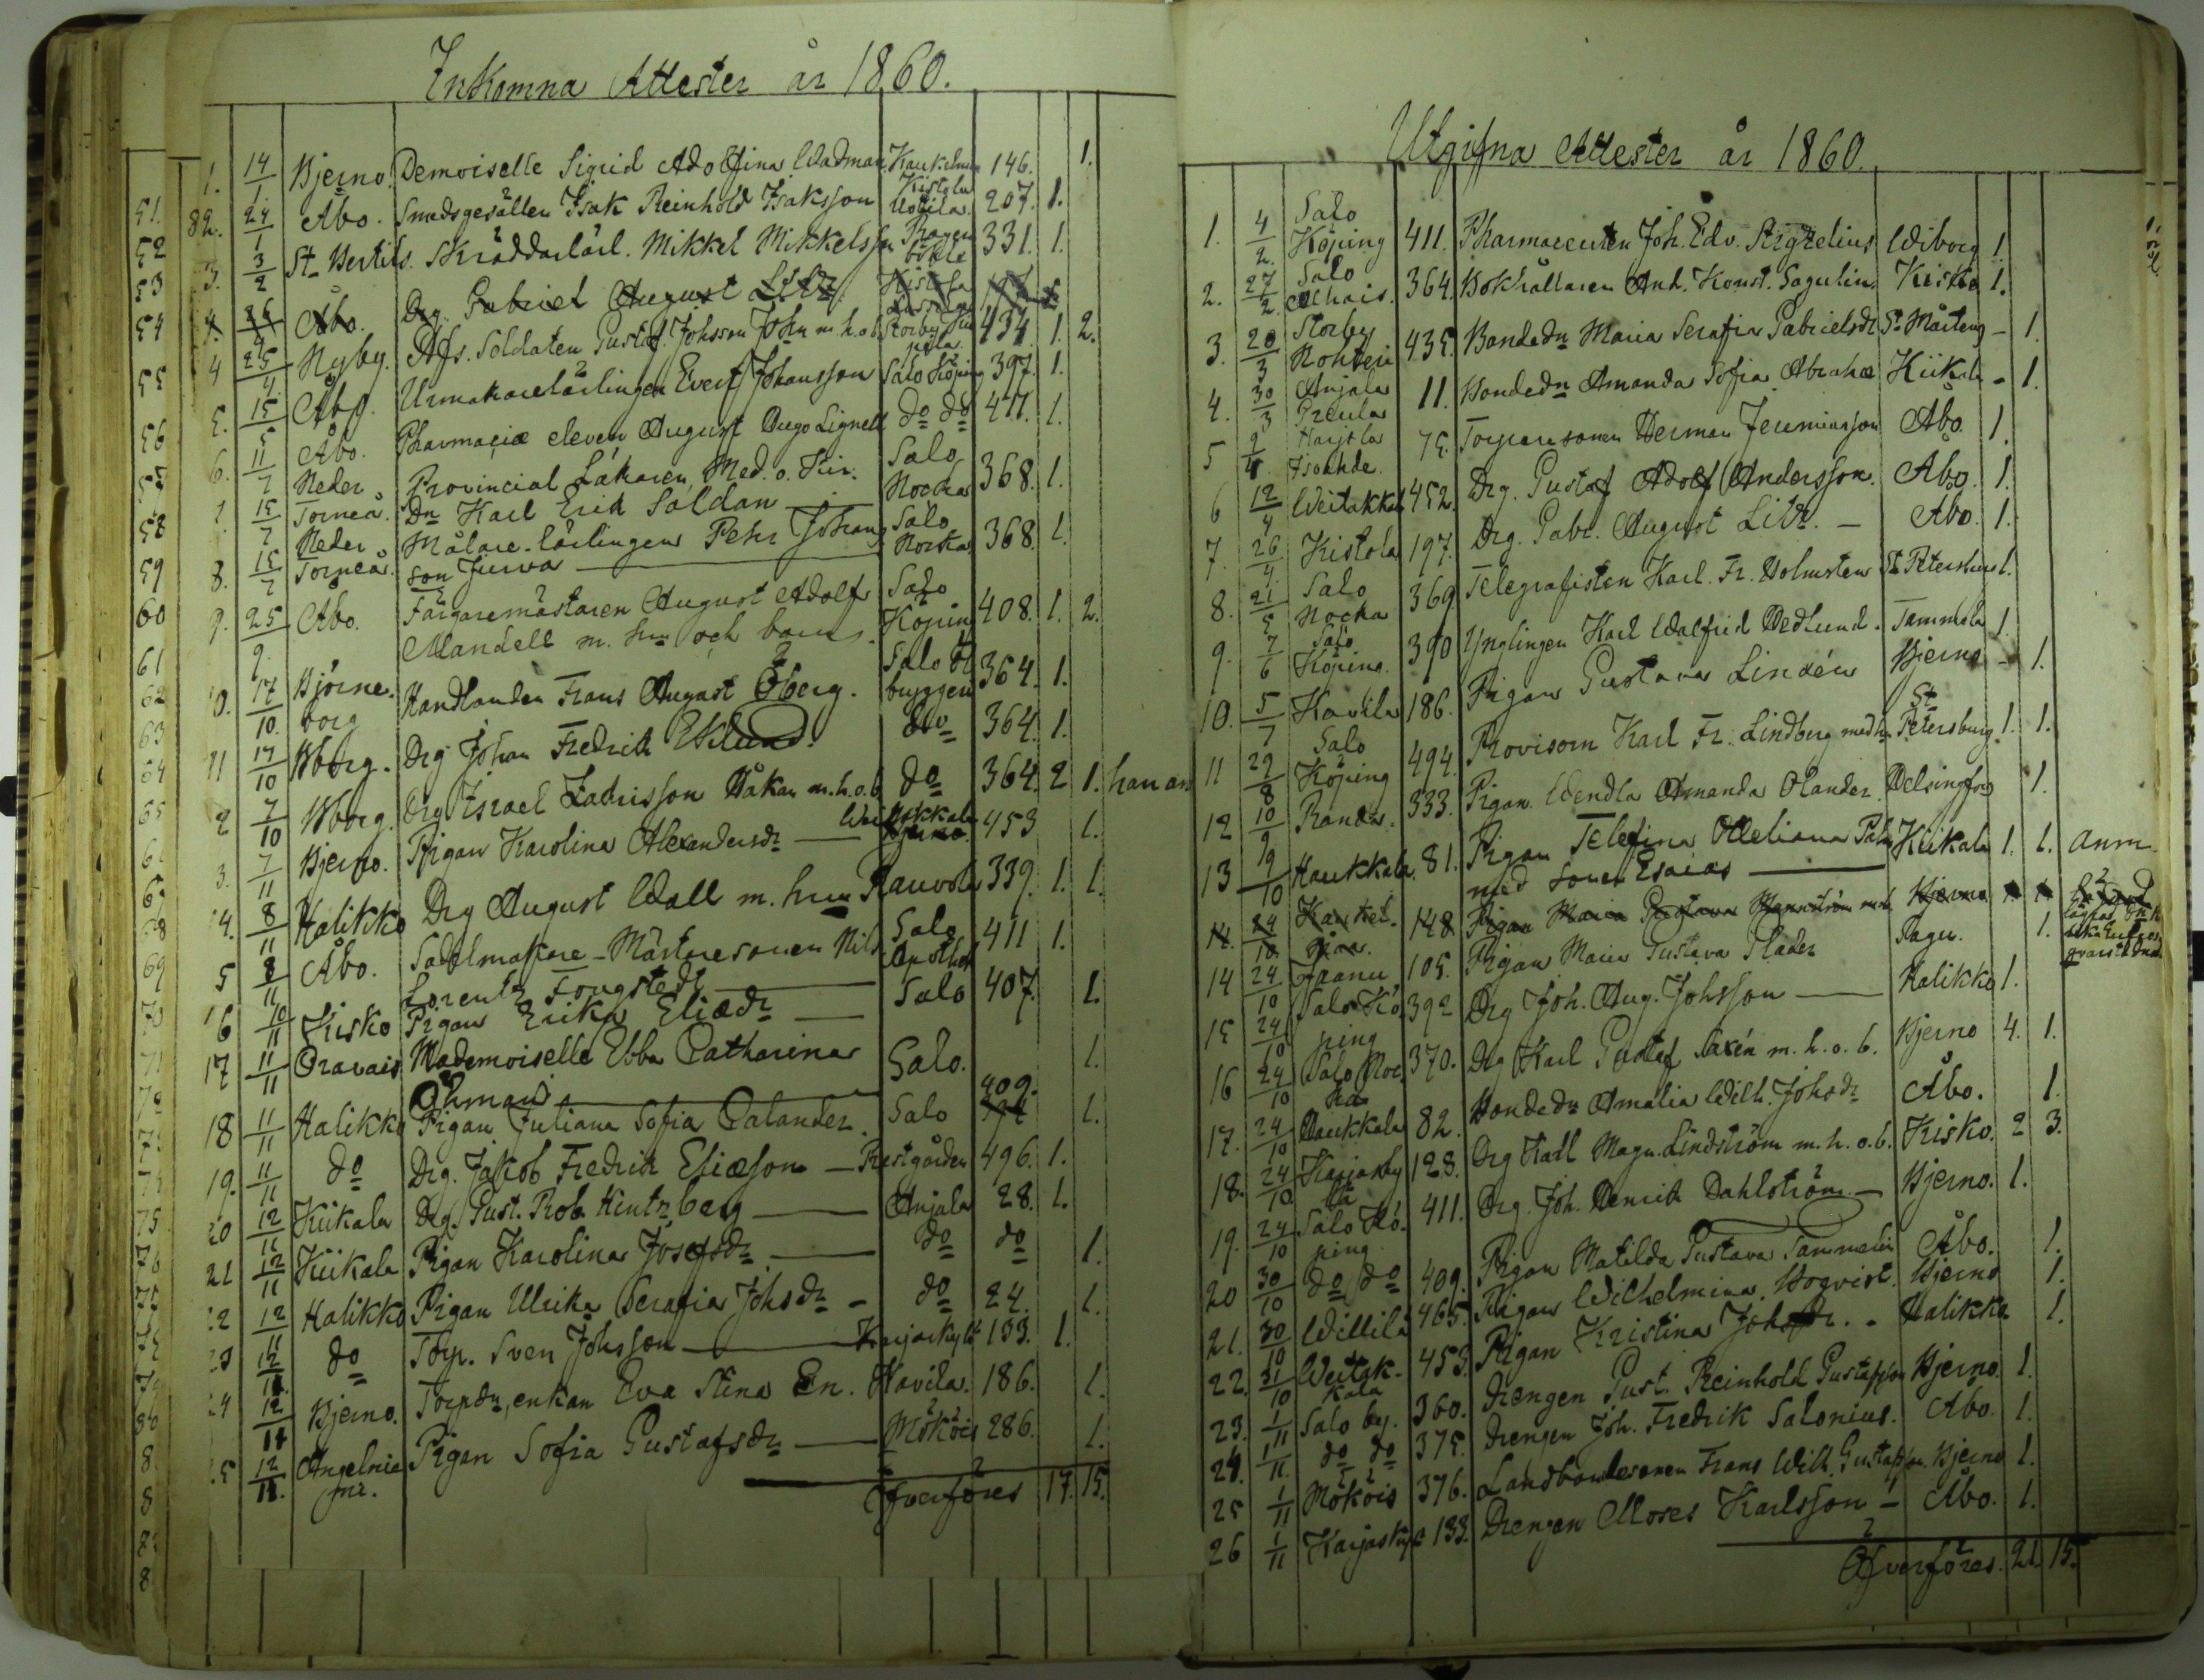 Inkomna Attester år 1860.
1. 14/1 Bjerno. Demoiselle Sigrid Adolfina Wadman 146. 1.
2. 24/1 Åbo. Smedsgesällen Isak Reinhold Isaksson Kistola Uotila 207. 1.
3. 3/2 St Bertils. Skräddarlärl. Mikkel Mikkelsson 331. 1.
4. 26/4 Åbo. Drg. Gabriel August Kistola
4 25/4 Nyby. Afs. Soldaten Gustaf Johsson m.h.o.b. Storby 434. 1. 2.
5. 15/5 Åbo. Urmakarelärlingen Evert Johansson Salo Köping 397. 1.
6. 11/7 Åbo. Pharmaciæ eleven August Hugo Lignell do do 411. 1.
7. 15/7 Neder Torneå. Provincial Läkaren, Med. o. Kir. Dn Karl Erik Soldan Salo Nocka 368. 1.
8. 15/7 Neder Torneå. Målare-lärlingen Pehr Johans son Jurva Salo Nocka 368. 1.
9. 25/9. Åbo. Färgaremästaren August Adolf Mandell m. hu och barn. Salo Köping 408. 1. 2.
10. 17/10. Björne- borg Handlanden Frans August Öberg. Salo bryggeri 364. 1.
11 17/10 Bborg. Drg Johan Fredrik Eklund. do 364. 1.
2 7/10 Bborg. Drg Israel Håkan m.h.o.b do 364. 2 1. han an
3. 7/11 Bjerno. Pigan Karolina Alexandersdr 453 1.
14. 8/11 Halikko Drg August Wall m. hu Rauvola 339. 1. 1.
5 8/11 Åbo. Sadelmakare-Mästaresonen Nils Lorentz Fougstedt Salo Apothek 411 1.
16 10/11 Kisko Pigan Erika Eliædr Salo 407. 1.
17 11/11 Oravais Mademoiselle Ebba Catharina Öhman Salo. 1.
18 11/11 Halikko Pigan Juliana Sofia Calander. Salo 409. 1.
19. 11/11 do Drg. Jakob Fredrik Eliæson Prestgården 496. 1.
20 12/11 Kiikala Drg. Gust. Rob. Hintzberg Anjala 28. 1.
21 12/11 Kiikala Pigan Karolina Josefsdr do do 1.
22 12/11 Halikko Pigan Ulrika Serafia Johsdr do 24. 1.
23 12/11 do Torp. Sven Johsson Karjaskylä 133. 1.
24 12/11 Bjerno. Torpdn, enkan Eva Stina En. Kavila. 186. 1.
25 12/11. Angelnie mi. Pigan Sofia Gustafsdr Mököis 286. 1.
Öfverföres 17. 15.
Utgifna Attester år 1860.
1. 4/2. Salo Köping 411. Pharmaceuten Joh. Edv. Wiborg 1.
2. 27/2. Salo 364. Bokhållaren Ant. Konst. Sagulin Kisko 1.
3. 20/3 Storby 435. Bondedn Maria Serafia Gabrielsdr St Mårtens 1.
4. 30/3 Anjala 11. Bondedn Amanda Sofia Abraha Kiikala 1.
5 9/4. Harjola 75. Torparesonen Herman Jeremiasson Åbo. 1.
6 12/4 Weitakka 452. Drg. Gustaf Adolf Andersson. Åbo. 1.
7. 26/4. Kistola 197. Drg. Gabr. August Åbo. 1.
8. 21/5 Salo Nocka 369 Telegrafisten Karl. Fr. Holmsten St Petersburg 1.
9. 7/6 Salo Köping. 390 Ynglingen Karl Walfrid Hedlund. Tammela 1.
10. 5/7 Kavila 186. Pigan Gustava Lindén Bjerno 1.
11 29/8 Salo Köping 494. Provisorn Karl Fr. Lindberg med h. St Petersburg. 1. 1.
12 10/9 Ranta. 333. Pigan Wendla Amanda Olander. Helsingfors 1.
13 19/10 Haukkala. 81. Pigan Telefina Otteliana med sonen Esaias Kiikala 1. 1. Anm.
14. 24/10. 148 Pigan Maria Gustava Bjerno
14 24/10 Jaanu 105. Pigan Maria Gustava Flader Sagu. 1.
15 24/10 Salo Kö- ping 392 Drg Joh. Aug. Johsson Halikko 1.
16 24/10 Salo Noc- ka 370. Drg Karl Gustaf Saxén m.h.o.b. Bjerno 4. 1.
17. 24/10 Haukkala 82. Bondedn Amalia Wilh. Johsdr Åbo. 1.
18. 24/10 Karjasky lä 128. Drg Karl Magn. Lindström m.h.o.b. Kisko. 2 3.
19. 24/10 Salo Kö- ping 411. Drg. Joh. Henrik Dahlström Bjerno. 1.
20 30/10 do do 409. Pigan Matilda Gustava Sammelin Åbo. 1.
21. 30/10 Willilä 465. Pigan Wilhelmina Hoqvist. Bjerno 1.
22. 31/10 Weitak- kala 453. Pigan Kristina Johsdr. Halikko 1.
23. 1/11 Salo by. 360. Drengen Gust. Reinhold Gustafsson Bjerno. 1.
24. 1/11. do do 375. Drengen Joh. Fredrik Salonius. Åbo. 1.
25 1/11 Mökois 376. Landbondesonen Frans Wilh. Gustafsson. Bjerno 1.
26 1/11 Karjaskylä 133. Drengen Moses Karlsson Åbo. 1.
Öfverföres. 21. 15.